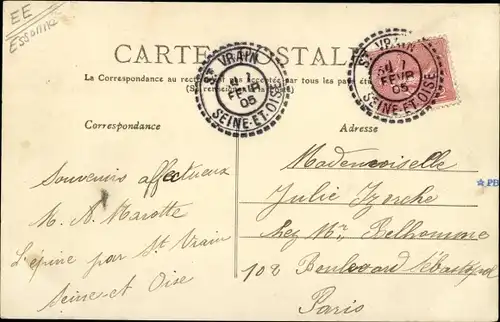 EE
Essonne
CARTE POSTALE
La Correspondance au recto n'est pas acceptée par tous les pays
ST VRAIN
1
FEVR
05
SEINE-ET-OISE
ST VRAIN
1
FEVR
05
SEINE-ET-OISE
Correspondance
Adresse
Souvenirs affectueux
M. A. Marotte
L'épine par St Vrain
Seine et Oise
Mademoiselle
Julie
chez Mr. Belhomme
102 Boulevard Sébastopol
Paris
★PB